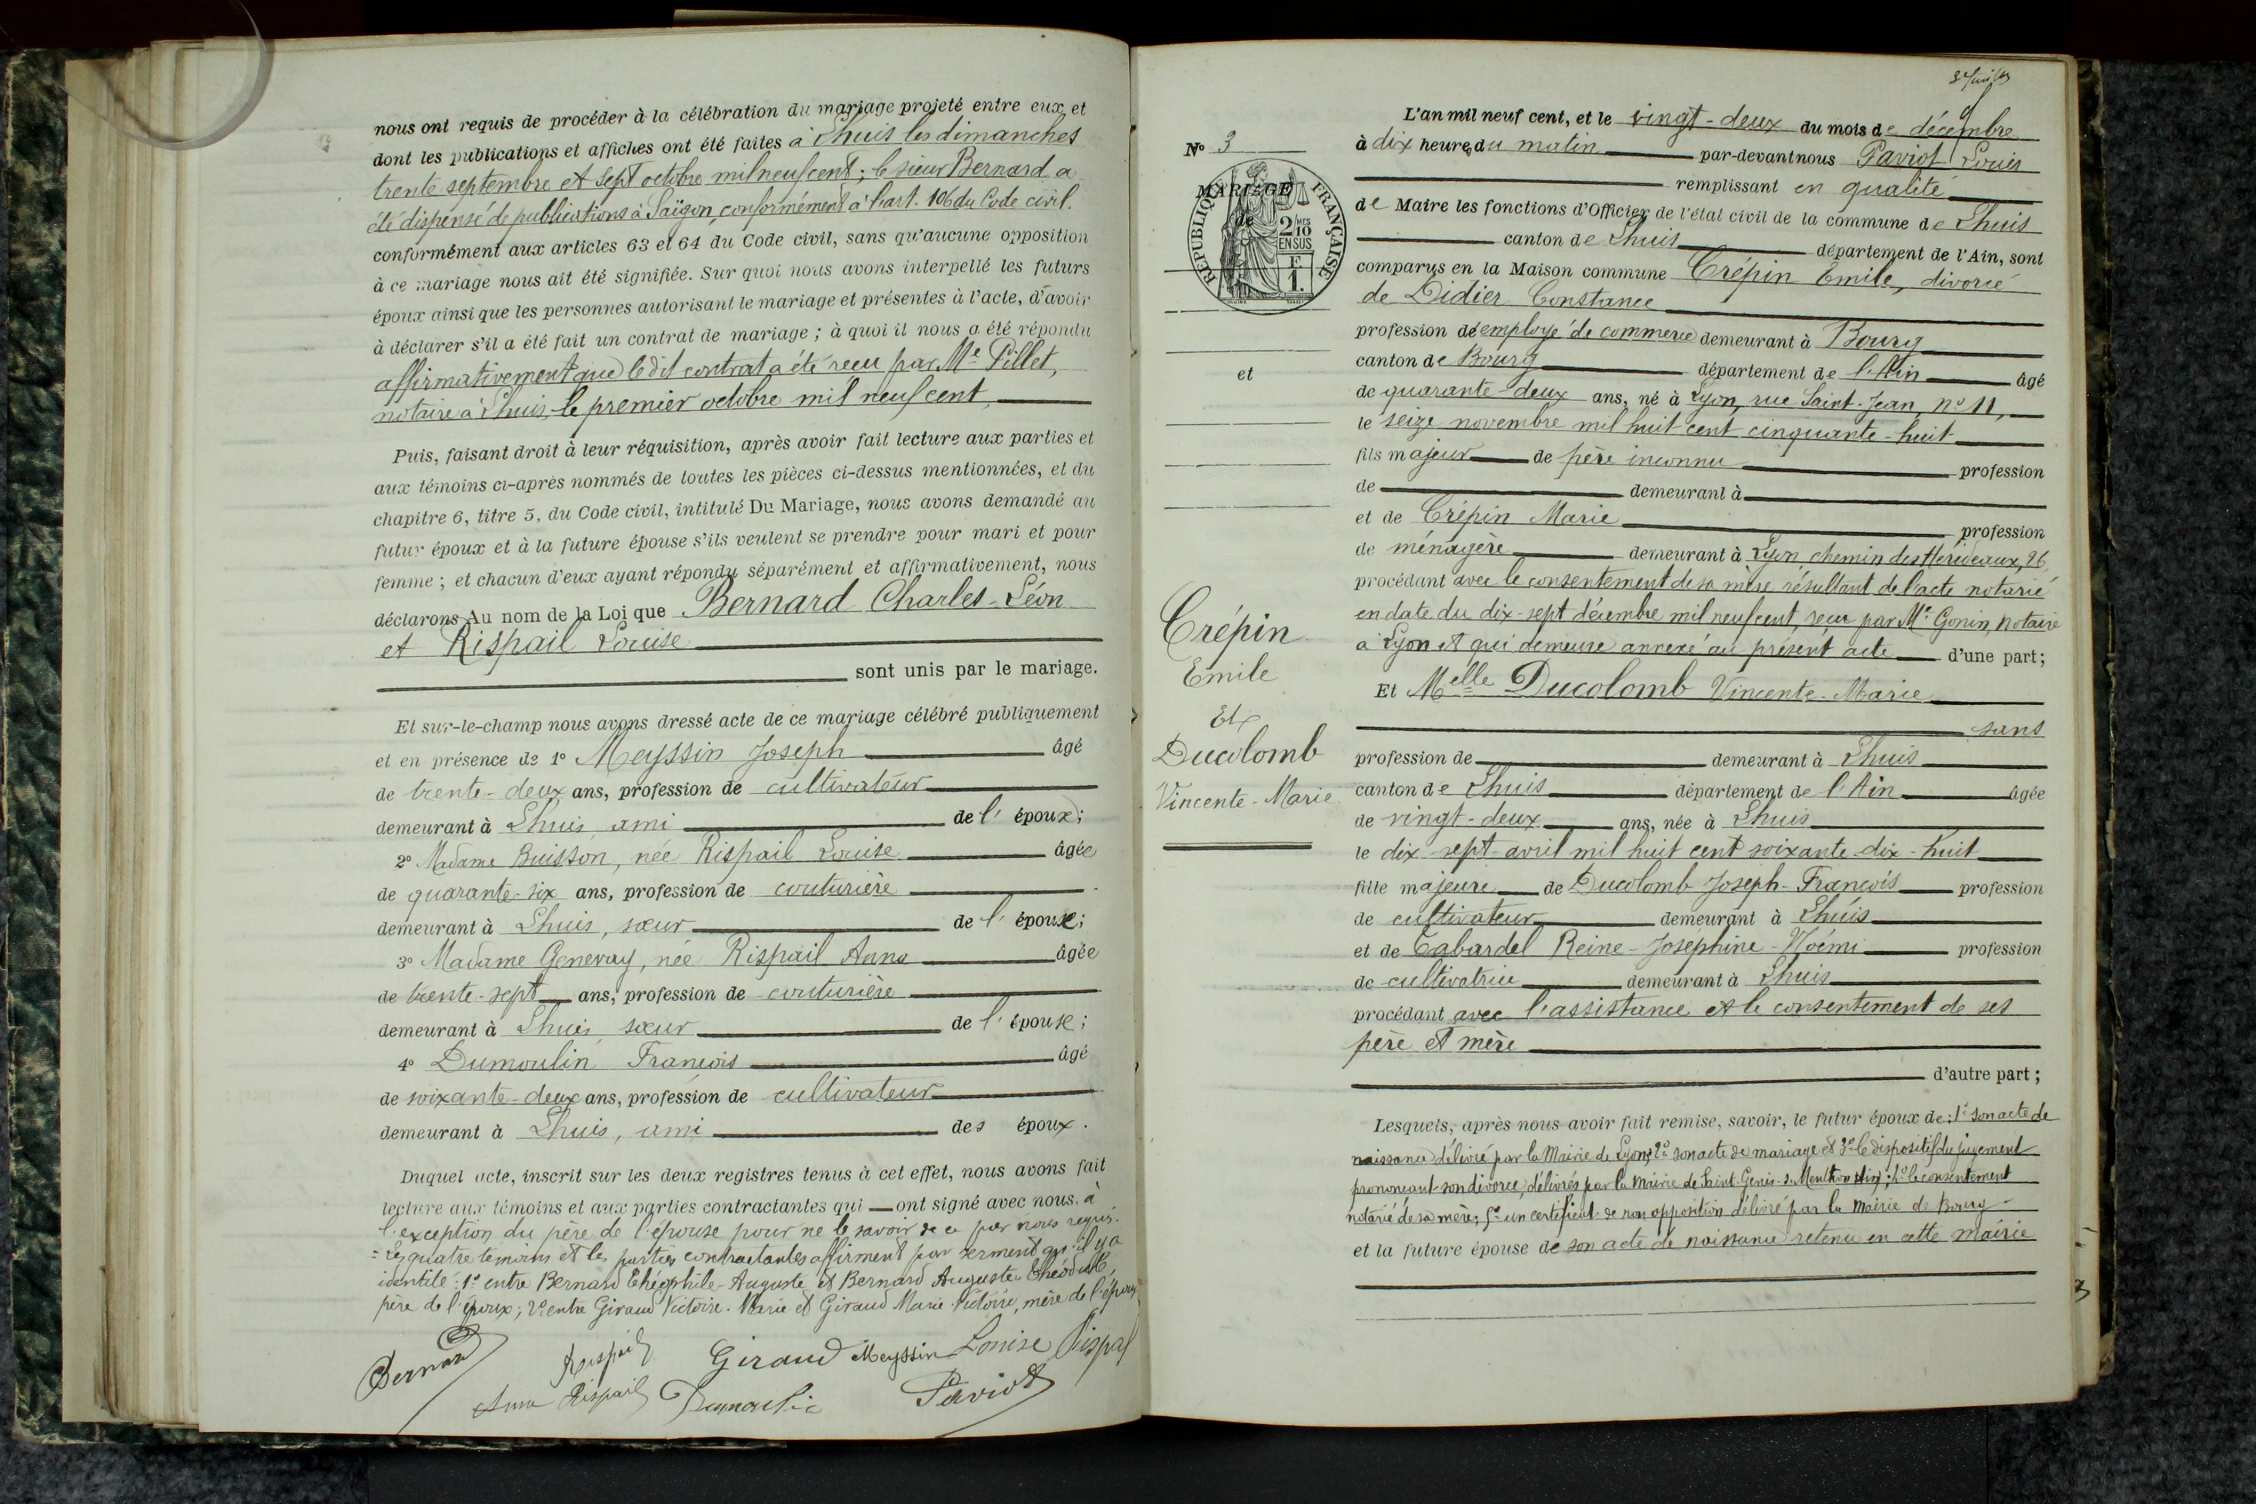 nous ont requis de procéder à la célébration du mariage projeté entre eux, et
dont les publications et affiches ont été faites à Lhuis les dimanches
trente septembre et sept octobre mil neuf cent ; le sieur Bernard a
été dispensé de publications à Saïgon, conformément à l'art. 106 du Code civil.
conformément aux articles 63 et 64 du Code civil, sans qu'aucune opposition
à ce mariage nous ait été signifiée. Sur quoi nous avons interpellé les futurs
époux ainsi que les personnes autorisant le mariage et présentes à l'acte, d'avoir
à déclarer s'il a été fait un contrat de mariage ; à quoi il nous a été répondu
affirmativement que ledit contrat a été reçu par Me Pillet,
notaire à Lhuis, le premier octobre mil neuf cent.
Puis, faisant droit à leur réquisition, après avoir fait lecture aux parties et
aux témoins ci-après nommés de toutes les pièces ci-dessus mentionnées, et du
chapitre 6, titre 5, du Code civil, intitulé Du Mariage, nous avons demandé au
futur époux et à la future épouse s'ils veulent se prendre pour mari et pour
femme ; et chacun d'eux ayant répondu séparément et affirmativement, nous
déclarons Au nom de la Loi que Bernard Charles-Léon
et Rispail Louise
sont unis par le mariage.
Et sur-le-champ nous avons dressé acte de ce mariage célébré publiquement
et en présence de 1° Meyssin Joseph âgé
de trente-deux ans, profession de cultivateur
demeurant à Lhuis, ami de l'époux ;
2° Madame Buisson, née Rispail Louise âgée
de quarante-six ans, profession de couturière
demeurant à Lhuis, sœur de l'épouse ;
3° Madame Genevay, née Rispail Anna âgée
de trente-sept ans, profession de couturière
demeurant à Lhuis, sœur de l'épouse ;
4° Dumoulin François âgé
de soixante-deux ans, profession de cultivateur
demeurant à Lhuis, ami des époux.
Duquel acte, inscrit sur les deux registres tenus à cet effet, nous avons fait
lecture aux témoins et aux parties contractantes qui ont signé avec nous. à
l'exception du père de l'épouse pour ne le savoir de ce par nous requis.
= Les quatre témoins et les parties contractantes affirment par serment qu'il y a
identité : 1° entre Bernard Théophile-Auguste et Bernard Auguste Théodule,
père de l'époux ; 2° entre Giraud Victoire-Marie et Giraud Marie-Victoire, mère de l'époux
Bernard Rispail Giraud Meyssin Louise Rispail
Anna Rispail Dumoulin Paviot
N° 3
MARIAGE
de
RÉPUBLIQUE FRANÇAISE
2 MES 10
EN SUS
F
1.
et
Crépin
Emile
Et
Ducolomb
Vincente-Marie
L'an mil neuf cent, et le vingt-deux du mois de décembre
à dix heures du matin par-devant nous Paviot Louis
remplissant en qualité
de Maire les fonctions d'Officier de l'état civil de la commune de Lhuis
canton de Lhuis département de l'Ain, sont
comparus en la Maison commune Crépin Emile, divorcé
de Didier Constance
profession de employé de commerce demeurant à Bourg
canton de Bourg département de l'Ain âgé
de quarante-deux ans, né à Lyon, rue Saint-Jean, n° 11,
le seize novembre mil huit cent cinquante-huit
fils majeur de père inconnu profession
de demeurant à
et de Crépin Marie profession
de ménagère demeurant à Lyon, chemin des 26,
procédant avec le consentement de sa mère résultant de l'acte notarié
en date du dix-sept décembre mil neuf cent, reçu par Me Gonin, notaire
à Lyon et qui demeure annexé au présent acte d'une part ;
Et Melle Ducolomb Vincente-Marie
sans
profession de demeurant à Lhuis
canton de Lhuis département de l'Ain âgée
de vingt-deux ans, née à Lhuis
le dix-sept avril mil huit cent soixante-dix-huit
fille majeure de Ducolomb Joseph-François profession
de cultivateur demeurant à Lhuis
et de Tabardel Reine-Joséphine-Noémi profession
de cultivatrice demeurant à Lhuis
procédant avec l'assistance et le consentement de ses
père et mère
d'autre part ;
Lesquels, après nous avoir fait remise, savoir, le futur époux de : 1° son acte de
naissance délivré par la Mairie de Lyon ; 2° son acte de mariage et 3° le dispositif du jugement
prononçant son divorce, délivrés par la mairie de Saint-Genis-s-Menthon (Ain) ; 4° le consentement
notarié de sa mère ; 5° un certificat de non opposition délivré par la Mairie de Bourg
et la future épouse de son acte de naissance retenu en cette mairie